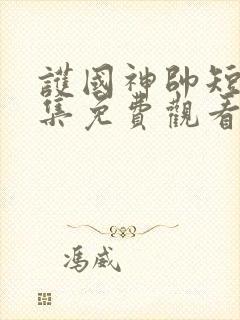 護國神帥短
集免費觀看
馮威